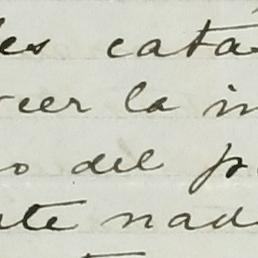 les catá
cer la in
o del p
te nad